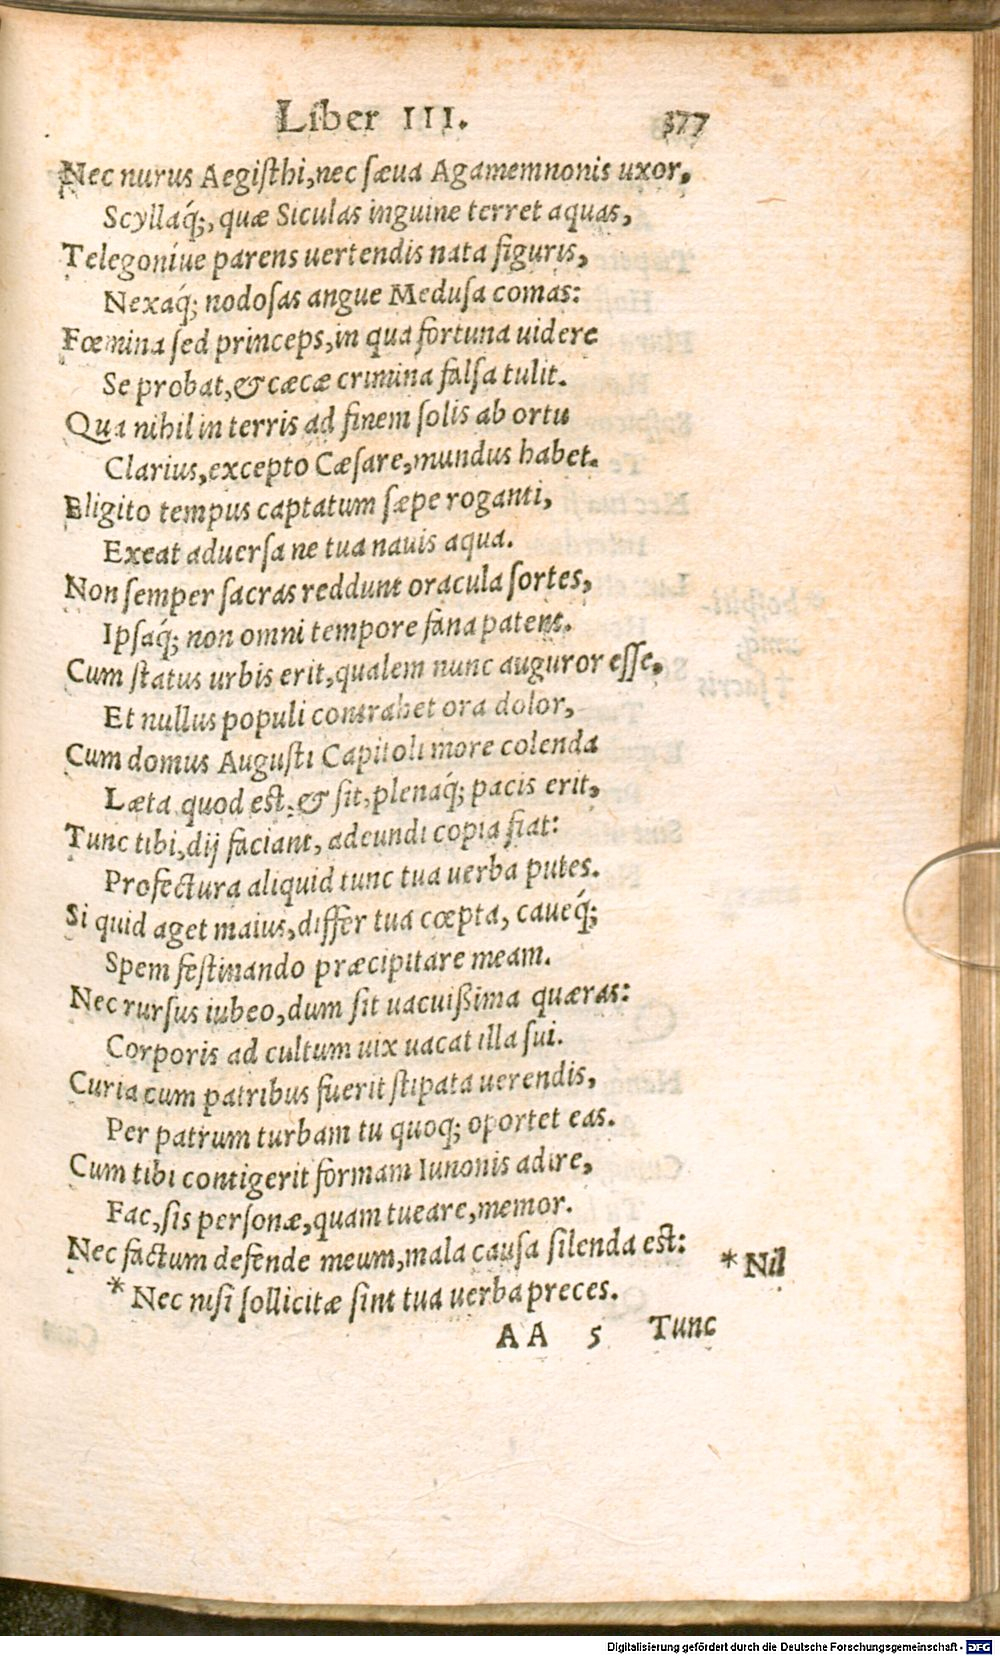 Liber III. 377
Nec nurus Aegiſthi, nec ſæua Agamemnonis uxor,
Scyllaq́;, quæ Siculas inguine terret aquas,
Telegoniúe parens uertendis nata figuris,
Nexaq́; nodoſas angue Meduſa comas:
Fœmina ſed princeps, in qua fortuna uidere
Se probat, & cæcæ crimina falſa tulit.
Qua nihil in terris ad finem ſolis ab ortu
Clarius, excepto Cæſare, mundus habet.
Eligito tempus captatum ſæpe roganti,
Exeat aduerſa ne tua nauis aqua.
Non ſemper ſacras reddunt oracula ſortes,
Ipſaq́; non omni tempore fana patent.
Cum ſtatus urbis erit, qualem nunc auguror eſſe,
Et nullus populi contrahet ora dolor,
Cum domus Auguſti Capitoli more colenda
Læta quod eſt, & ſit, plenaq́; pacis erit,
Tunc tibi, dij faciant, adeundi copia fiat:
Profectura aliquid tunc tua uerba putes.
Si quid aget maius, differ tua cœpta, caueq́;
Spem feſtinando præcipitare meam.
Nec rurſus iubeo, dum ſit uacuißima quæras:
Corporis ad cultum uix uacat illa ſui.
Curia cum patribus fuerit ſtipata uerendis,
Per patrum turbam tu quoq; oportet eas.
Cum tibi contigerit formam Iunonis adire,
Fac, ſis perſonæ, quam tueare, memor.
Nec factum defende meum, mala cauſa ſilenda eſt:
* Nec niſi ſollicitæ ſint tua uerba preces.
* Nil
AA 5 Tunc
Digitalisierung gefördert durch die Deutsche Forschungsgemeinschaft - DFG